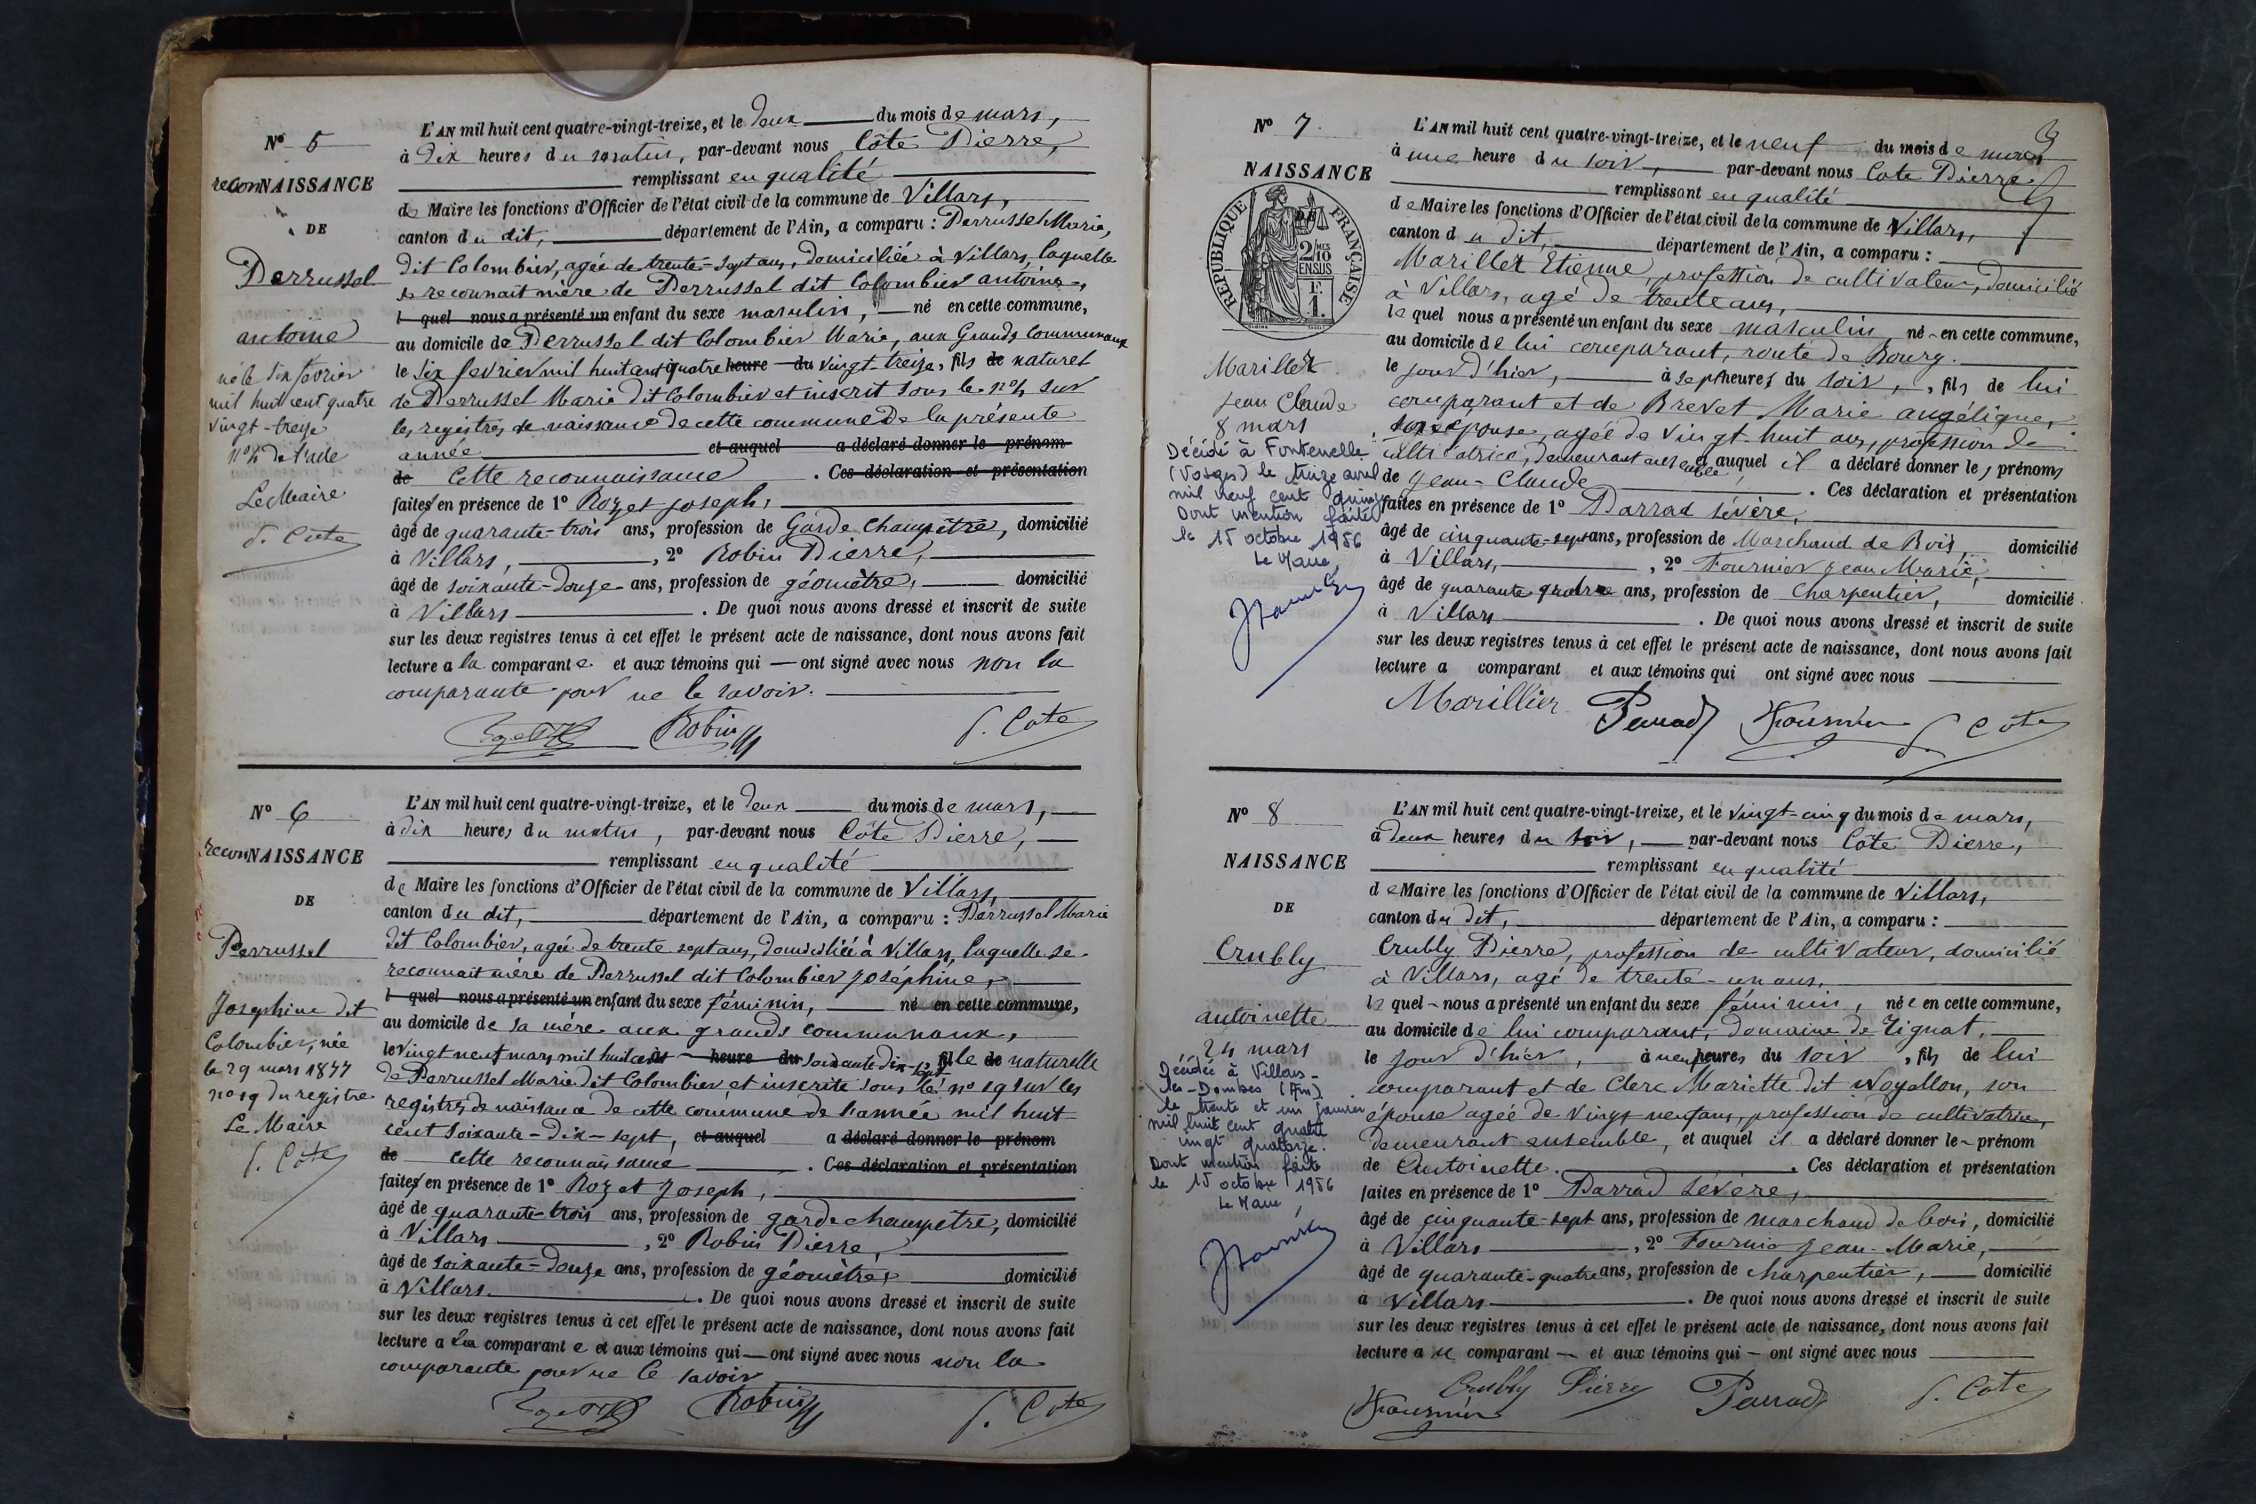 N° 5
reconNAISSANCE
DE
Perrussel
antoine
né le six fevrier
mil huit cent quatre
vingt-treize
n° 4 de l'acte
Le Maire
P. Cote
L'AN mil huit cent quatre-vingt-treize, et le deux du mois de mars,
à dix heures du matin, par-devant nous Côte Pierre,
remplissant en qualité
de Maire les fonctions d'Officier de l'état civil de la commune de Villars,
canton du dit, département de l'Ain, a comparu : Perrussel Marie,
dit Colombier, agée de trente-sept ans, domiciliée à Villars, laquelle
se reconnait mère de Perrussel dit Colombier antoine,
l quel nous a présenté un enfant du sexe masculin, né en cette commune,
au domicile de Perrussel dit Colombier Marie, aux Grands Communaux
le six fevrier mil huit cent quatre heure du vingt-treize, fils de naturel
de Perrussel Marie dit Colombier et inscrit sous le n° 4 sur
les registres de naissance de cette commune de la présente
année et auquel a déclaré donner le prénom
de Cette reconnaissance . Ces déclaration et présentation
faites en présence de 1° Rozet Joseph,
âgé de quarante-trois ans, profession de Garde Champêtre, domicilié
à Villars, , 2° Robin Pierre,
âgé de soixante-douze ans, profession de géomètre, domicilié
à Villars . De quoi nous avons dressé et inscrit de suite
sur les deux registres tenus à cet effet le présent acte de naissance, dont nous avons fait
lecture a la comparante et aux témoins qui ont signé avec nous non la
comparante pour ne le savoir.
Rozet Robin P. Cote
N° 6
reconNAISSANCE
DE
Perrussel
Josephine dit
Colombier, née
le 29 mars 1877
n° 19 du registre
Le Maire
P. Cote
L'AN mil huit cent quatre-vingt-treize, et le deux du mois de mars,
à dix heures du matin, par-devant nous Côte Pierre,
remplissant en qualité
de Maire les fonctions d'Officier de l'état civil de la commune de Villars,
canton du dit, département de l'Ain, a comparu : Perrussel Marie
dit Colombier, agée de trente sept ans, domiciliée à Villars, laquelle se
reconnait mère de Perrussel dit Colombier Joséphine,
l quel nous a présenté un enfant du sexe féminin, né en cette commune,
au domicile de sa mère aux grands communaux,
le vingt neuf mars mil huit cent heure du soixante dix-sept fille de naturelle
de Perrussel Marie dit Colombier et inscrite sous le n° 19 sur les
registres de naissance de cette commune de l'année mil huit
cent soixante-dix-sept, et auquel a déclaré donner le prénom
de cette reconnaissance . Ces déclaration et présentation
faites en présence de 1° Rozet Joseph,
âgé de quarante-trois ans, profession de garde champêtre, domicilié
à Villars , 2° Robin Pierre,
âgé de soixante-douze ans, profession de géomètre, domicilié
à Villars . De quoi nous avons dressé et inscrit de suite
sur les deux registres tenus à cet effet le présent acte de naissance, dont nous avons fait
lecture a la comparante et aux témoins qui ont signé avec nous non la
comparante pour ne le savoir
Rozet Robin P. Cote
N° 7
NAISSANCE
RÉPUBLIQUE FRANÇAISE
2/10 EN SUS
1 F.
Marillez
Jean Claude
8 mars
Décédé à Fontenelle
(Vosges) le treize avril
mil neuf cent quinze
Dont mention faite
le 15 octobre 1956
Le Maire,
3
L'AN mil huit cent quatre-vingt-treize, et le neuf du mois de mars,
à une heure du soir, par-devant nous Cote Pierre,
remplissant en qualité
de Maire les fonctions d'Officier de l'état civil de la commune de Villars,
canton du dit, département de l'Ain, a comparu :
Marillez Etienne, profession de cultivateur, domicilié
à Villars, agé de trente ans,
le quel nous a présenté un enfant du sexe masculin né en cette commune,
au domicile de lui comparant, route de Bourg.
le jour d'hier, à sept heures du soir, , fils de lui
comparant et de Brevet Marie angélique,
son épouse, agée de vingt-huit ans, profession de
cultivatrice, demeurant ensemble, et auquel il a déclaré donner les prénoms
de Jean-Claude . Ces déclaration et présentation
faites en présence de 1° Parrad Sévère,
âgé de cinquante-sept ans, profession de Marchand de Bois, domicilié
à Villars, , 2° Fournier Jean Marie,
âgé de quarante quatre ans, profession de Charpentier, domicilié
à Villars . De quoi nous avons dressé et inscrit de suite
sur les deux registres tenus à cet effet le présent acte de naissance, dont nous avons fait
lecture a comparant et aux témoins qui ont signé avec nous
Marillier Parrad Fournier P. Cote
N° 8
NAISSANCE
DE
Crubly
antoinette
24 mars
Décédée à Villars-
les-Dombes (Ain)
le trente et un janvier
mil huit cent quatre
vingt quatorze.
Dont mention faite
le 15 octobre 1956
Le Maire,
L'AN mil huit cent quatre-vingt-treize, et le vingt-cinq du mois de mars,
à deux heures du soir, par-devant nous Côte Pierre,
remplissant en qualité
de Maire les fonctions d'Officier de l'état civil de la commune de Villars,
canton du dit, département de l'Ain, a comparu :
Crubly Pierre, profession de cultivateur, domicilié
à Villars, agé de trente-un ans,
le quel nous a présenté un enfant du sexe féminin, née en cette commune,
au domicile de lui comparant, domaine de Tignat,
le jour d'hier, à neuf heures du soir , fils de lui
comparant et de Clerc Mariette dit Noyellon, son
épouse agée de vingt neuf ans, profession de cultivatrice,
demeurant ensemble, et auquel il a déclaré donner le prénom
de Antoinette. . Ces déclaration et présentation
faites en présence de 1° Parrad Sévère,
âgé de cinquante-sept ans, profession de marchand de bois, domicilié
à Villars , 2° Fournier Jean-Marie,
âgé de quarante-quatre ans, profession de charpentier, domicilié
à Villars . De quoi nous avons dressé et inscrit de suite
sur les deux registres tenus à cet effet le présent acte de naissance, dont nous avons fait
lecture au comparant et aux témoins qui ont signé avec nous
Crubly Pierre Parrad P. Cote
Fournier